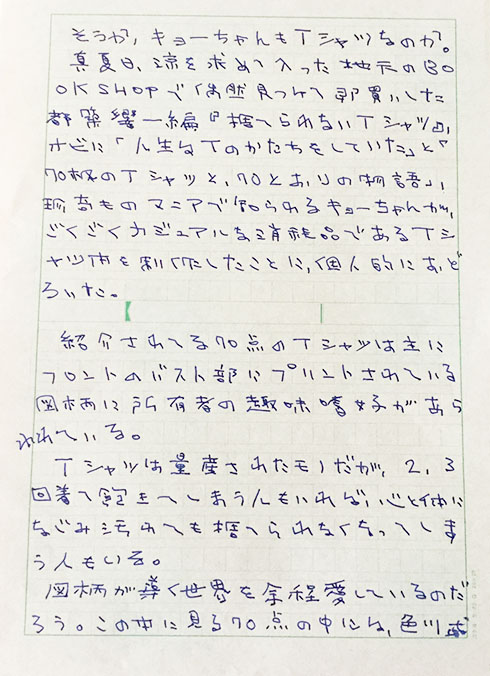 そうか、キョーちゃんもTシャツなのか。
真夏日、涼を求めて入った地元のBO
OKSHOPで偶然見つけて即買いした
都築響一編『捨てられないTシャツ』、
オビに「人生はTのかたちをしていた」と「
70枚のTシャツと、70とおりの物語」、
珍奇ものマニアで知られるキョーちゃんが、
ごくごくカジュアルな消耗品であるTシ
ャツ本を制作したことに、個人的におど
ろいた。
紹介されてる70点のTシャツは主に
フロントのバスト部にプリントされている
図柄に所有者の趣味嗜好があら
われている。
Tシャツは量産されたモノだが、2、3
回着て飽きてしまう人もいれば、心と体に
なごみ汚れても捨てられなくなってしま
う人もいる。
図柄が導く世界を余程愛しているのだ
ろう。この本に見る70点の中には、色川武